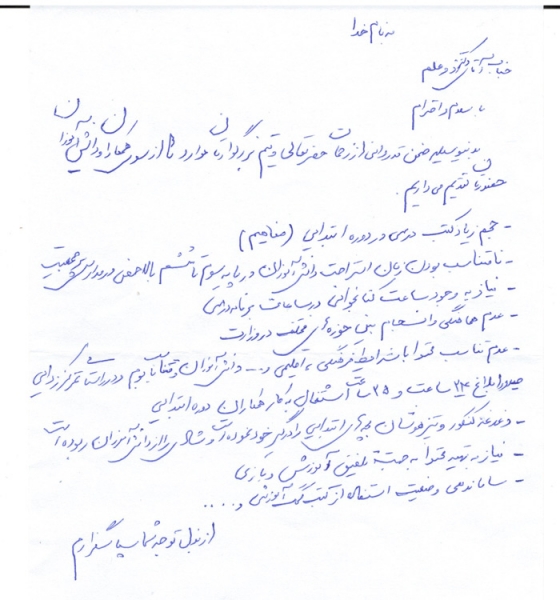 به نام خدا
جناب آقای دکتر
با سلام و احترام
بدینوسیله ضمن قدردانی از زحمات حضرتعالی و تیم بزرگوارتان موارد را از سوی همکاران و دانش آموزان
حضورتان تقدیم می داریم.
- حجم زیاد کتب درسی در دوره ابتدایی (مفاهیم)
- نامتناسب بودن زمان استراحت دانش آموزان در پایه سوم تا ششم بالاخص در مدارس پرجمعیت
- نیاز به وجود ساعت کتابخوانی در ساعات برنامه درسی
- عدم هماهنگی و انسجام بین حوزه های مختلف در وزارت
- عدم تناسب محتوا با شرایط فرهنگی، اقلیمی و ... دانش آموزان و در راستای تمرکززدایی
ابلاغ ۲۴ ساعت و ۲۵ ساعت اشتغال به کار همکاران دوره ابتدایی
- دغدغه کنکور و تیزهوشان بچه های ابتدایی را درگیر خود نموده است و شادی را از دانش آموزان ربوده است
- نیاز به تهیه محتوا به جنبه تلفیق آموزش و بازی
- ساماندهی وضعیت استفاده از کتب کمک آموزشی و ....
از بذل توجه شما سپاسگزارم